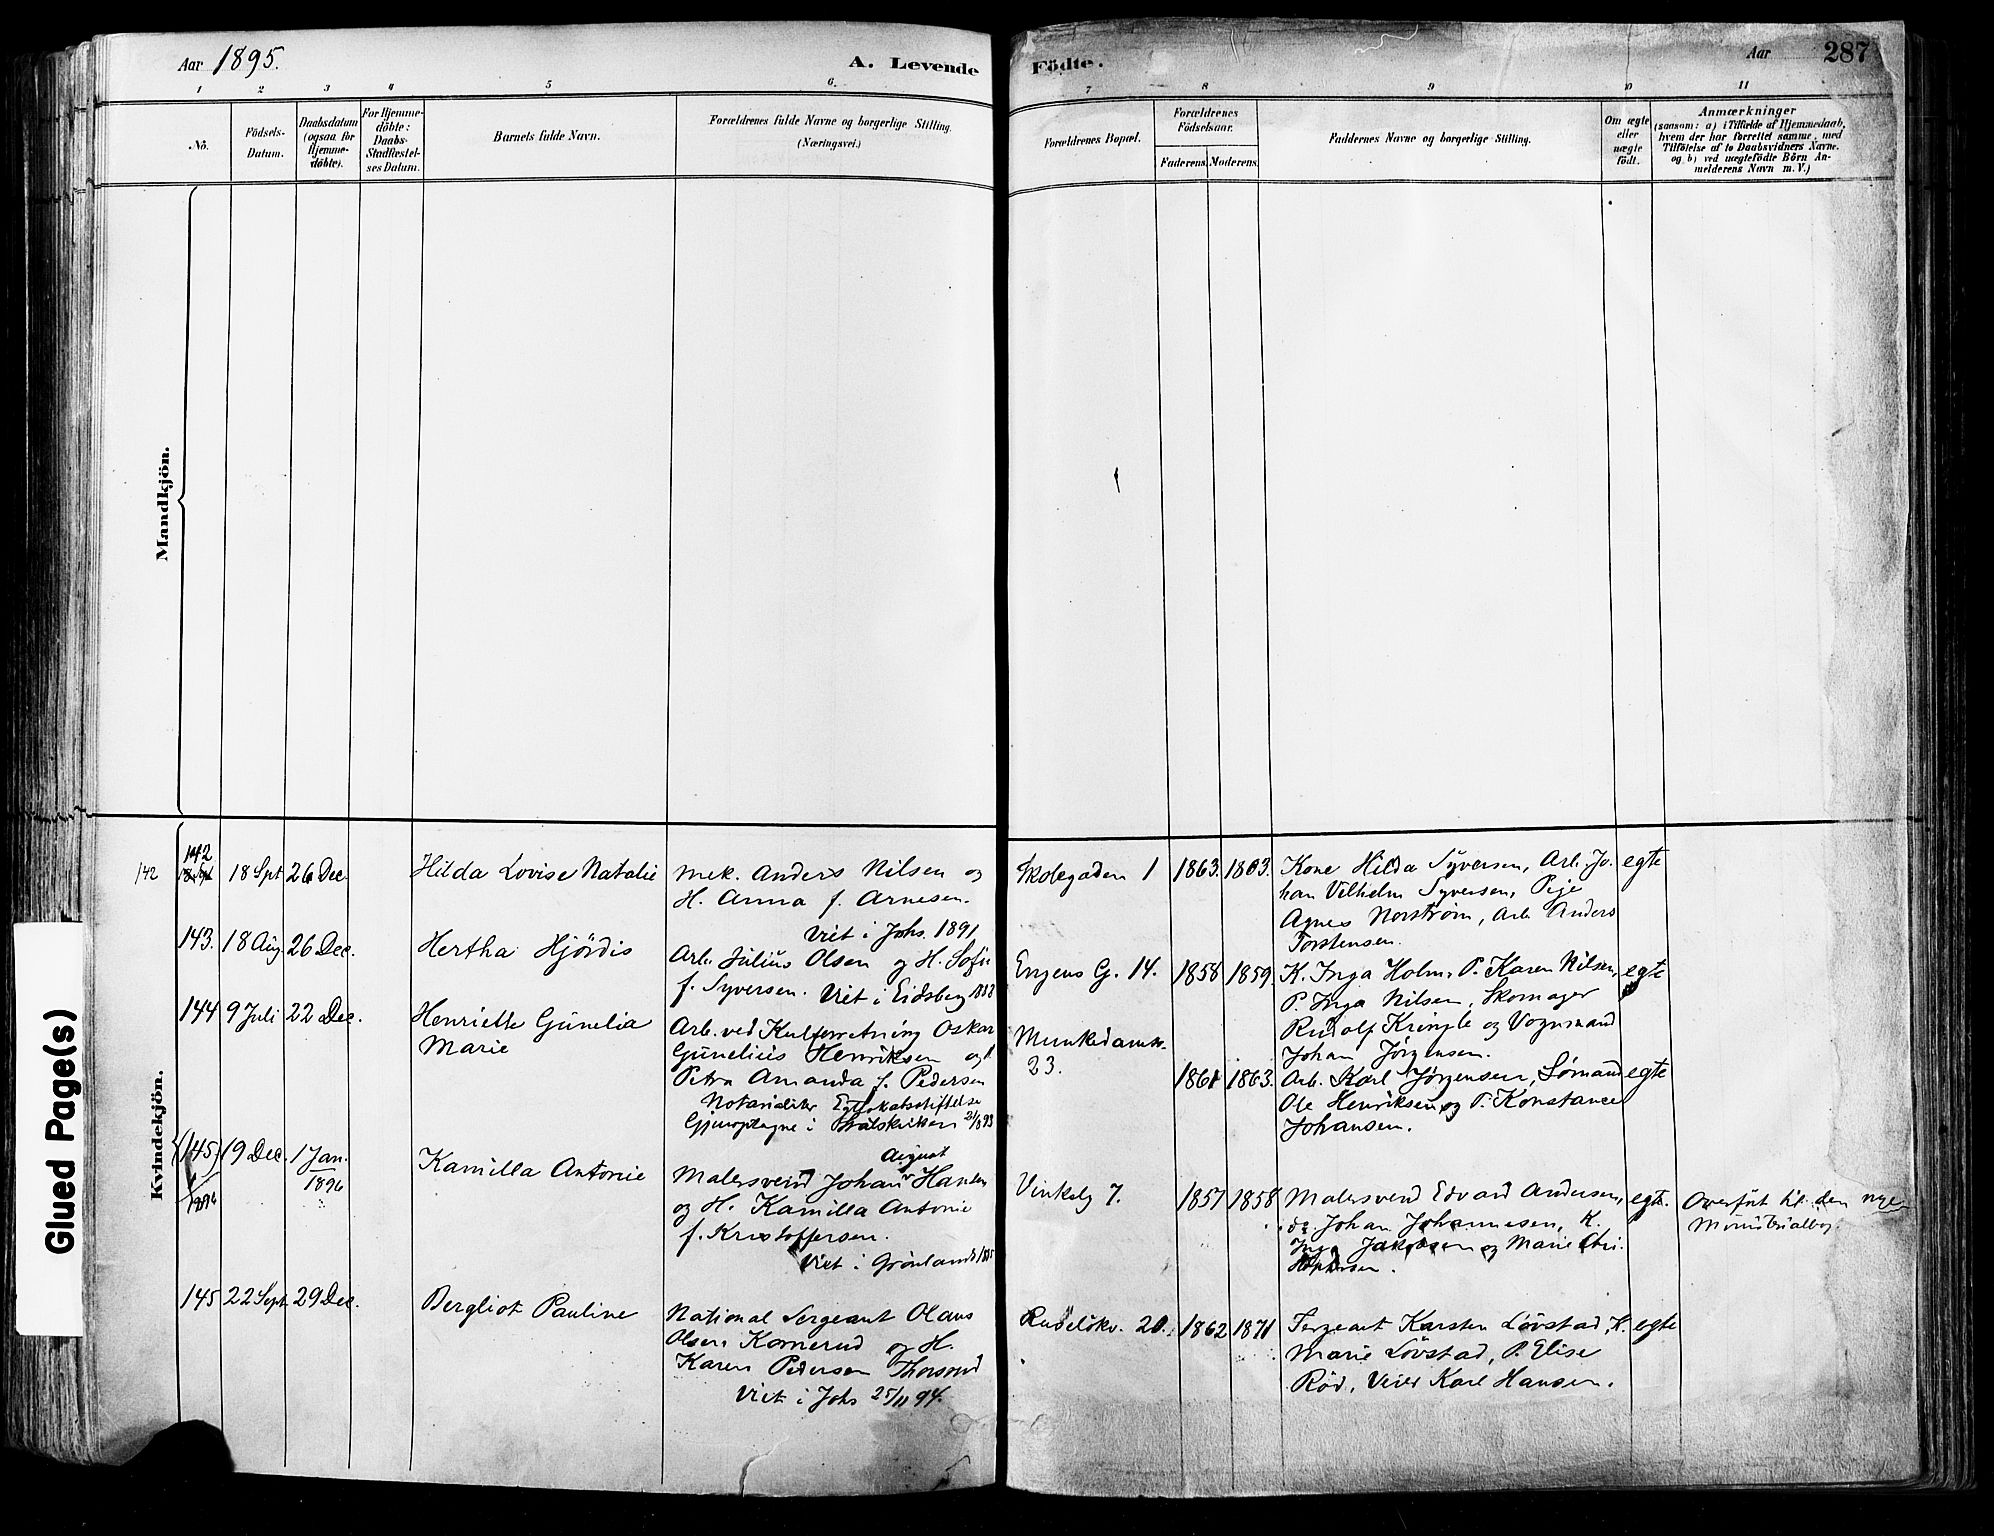 Aar 1895.
A. Levende
Födte.
Aar 287
1 2 3 4 5 6. 7 8 9 10 11
No.
Födsels-
Datum.
Daabsdatum
(ogsaa för
Hjemme-
döbte).
For Hjemme-
döbte:
Daabs-
Stadfestel-
ses Datum.
Barnets fulde Navn.
Forældrenes fulde Navne og borgerlige Stilling.
(Næringsvei.)
Forældrenes Bopæl.
Forældrenes
Födselsaar.
Faderens. Moderens.
Faddernes Navne og borgerlige Stilling.
Om ægte
eller
uægte
födt.
Anmærkninger
(saasom: a) i Tilfælde af Hjemmedaab,
hvem der har forrettet samme, med
Tilföielse af to Daabsvidners Navne.
og b) ved uægtefödte Börn An-
melderens Navn m. V.)
Mandkjön.
Kvindekjön.
Glued Page(s)
142
142
18 Spt
26 Dec
Hilda Lovise Natalie
Mek. Anders Nilsen og
H. Anna f. Arnesen.
Viet i Johs. 1891
Skolegaden 1
1863.
1863.
Kone Hilda Syversen, Arb. Jo.
han Vilhelm Syversen, Pige
Agnes Norström, Arb. Anders
Torstensen.
egte
143.
18 Aug.
26 Dec.
Hertha Hjördis
Arb. Julius Olsen og H. Sofie
f. Syversen. Viet i Eidsberg 1888
Engens G. 14.
1858
1859.
K. Inga Holm, P. Karen Nilsen,
P. Inga Nilsen, Skomager
Rudolf Kringle og Vognmand
Johan Jørgensen.
egte
144
9 Juli
22 Dec.
Henriette Günelia
Marie
Arb. ved Kulforretning Oskar
Günelius Henriksen og
Petra Amanda f. Pedersen
Notarialiter
Munkedamsv.
23.
1861
1863.
Arb. Karl Jørgensen, Sømand
Ole Henriksen og P. Konstance
Johansen.
egte
(145)
19 Dec.
1 Jan.
1896
Kamilla Antonie
August
Malersvend Johan Hansen
og H. Kamilla Antonie
f. Kristoffersen.
Viet i Grönland 1885
Vinkelg 7.
1857
1858
Malersvend Edvard Andersen,
do. Johan Johannesen, K.
Inga Jakobsen og Marie Chri
stophersen.
egte.
Overført til den nye
Ministerialbog.
145
22 Sept
29 Dec.
Bergliot Pauline
National Sergeant Olaus
Olsen Komerud og H.
Karen Pedersen Thorsrud
Viet i Johs 25/11 94.
Rudelökv. 20.
1862
1871
Sergeant Karsten Lövstad, K.
Marie Lövstad, P. Elise
Röd, Veier Karl Hansen.
egte